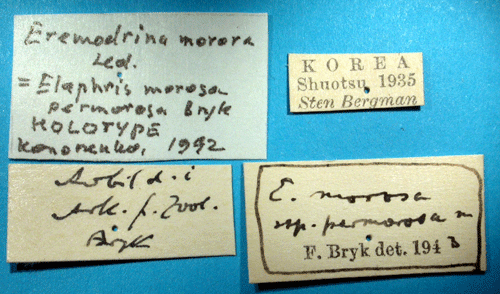 Eremodrina morora
Led.
= Elaphris morosa
permorosa Bryk
HOLOTYPE
Kononenko, 1992
KOREA
Shuotsu 1935
Sten Bergman
Arbild. i
Ark. f. Zool.
Bryk
E. morosa
ssp. permorosa m
F. Bryk det. 194